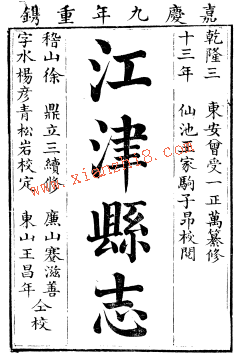 嘉慶九年重鐫
乾隆三十三年
東安曾受一正萬纂修
仙池王家駒子昂校閱
江津縣志
稽山徐鼎立三續修
字水楊彥青松岩校定
廉山蔡滋善
東山王昌年
仝校
www.xianzhi8.com